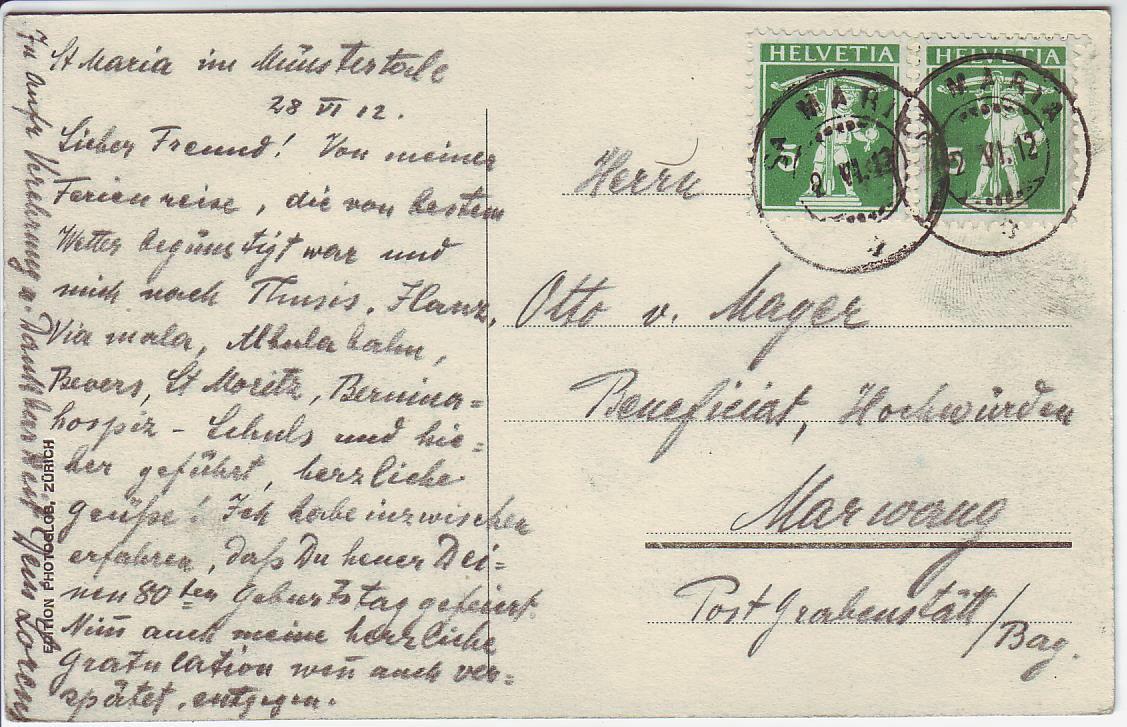 St Maria im Münstertale
28 VI 12.
Lieber Freund! Von meiner
Ferienreise, die von bestem
Wetter begünstigt war und
mich nach Thusis, Ilanz,
Via mala, Albulabahn,
Bevers, St Moritz, Bernina=
hospiz - Schuls und hie=
her geführt, herzliche
Grüße! Ich habe inzwischen
erfahren, daß Du heuer Dei=
nen 80ten Geburtstag gefeiert.
Nim̅ auch meine herzliche
Gratulation wen̅ auch ver=
spätet, entgegen.
In aufr Verehrung u. Dankbarkeit Dein Lorenz
EDITION PHOTOGLOB, ZÜRICH
HELVETIA
HELVETIA
STA MARIA
VI.12
STA MARIA
VI.12
Herrn
Otto v. Mager
Beneficiat, Hochwürden
Marwang
Post Grabenstätt/
Bay.